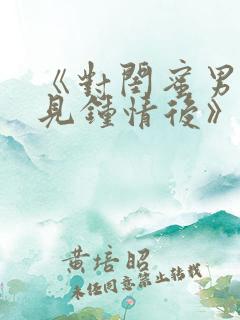 《對閨蜜男
見鍾情後》
黄培昭
未任同意禁止转载